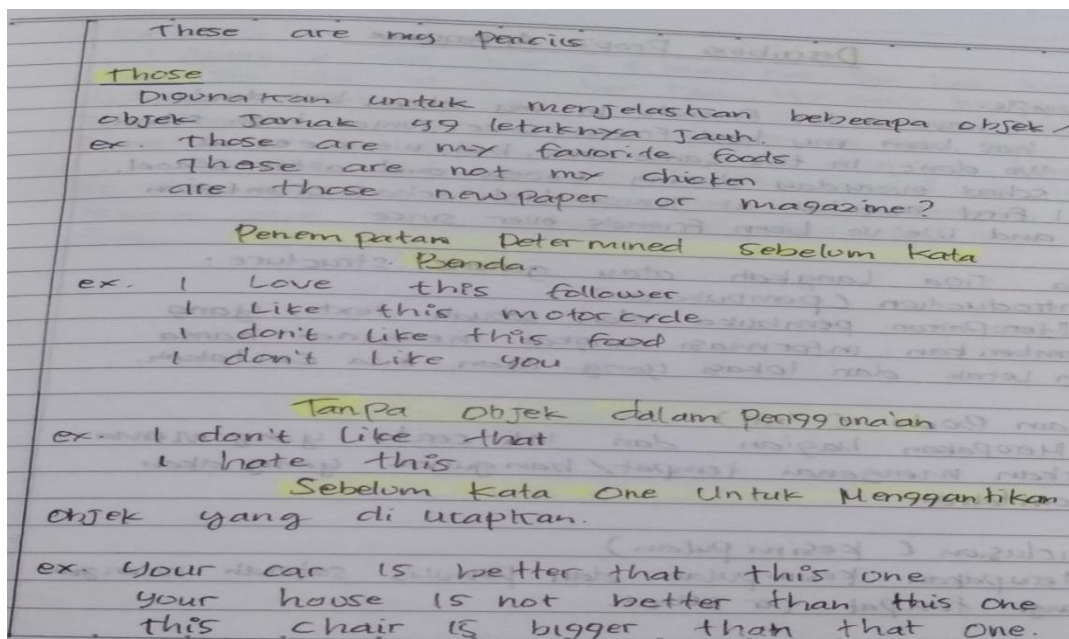 These are my pencils
Those
Digunakan untuk menjelaskan beberapa objek/
objek Jamak yg letaknya Jauh.
ex. Those are my favorite foods
These are not my chicken
are those newpaper or magazine?
Penempatan Determined Sebelum Kata
Benda.
ex. I Love this follower
I Like this motorcycle
I don't Like this food
I don't Like you
Tanpa Objek dalam Penggunaan
ex. I don't Like that
I hate this
Sebelum Kata One Untuk Menggantikan
objek yang di ucapkan.
ex. Your car is better that this one
your house is not better than this one
this chair is bigger than that one.